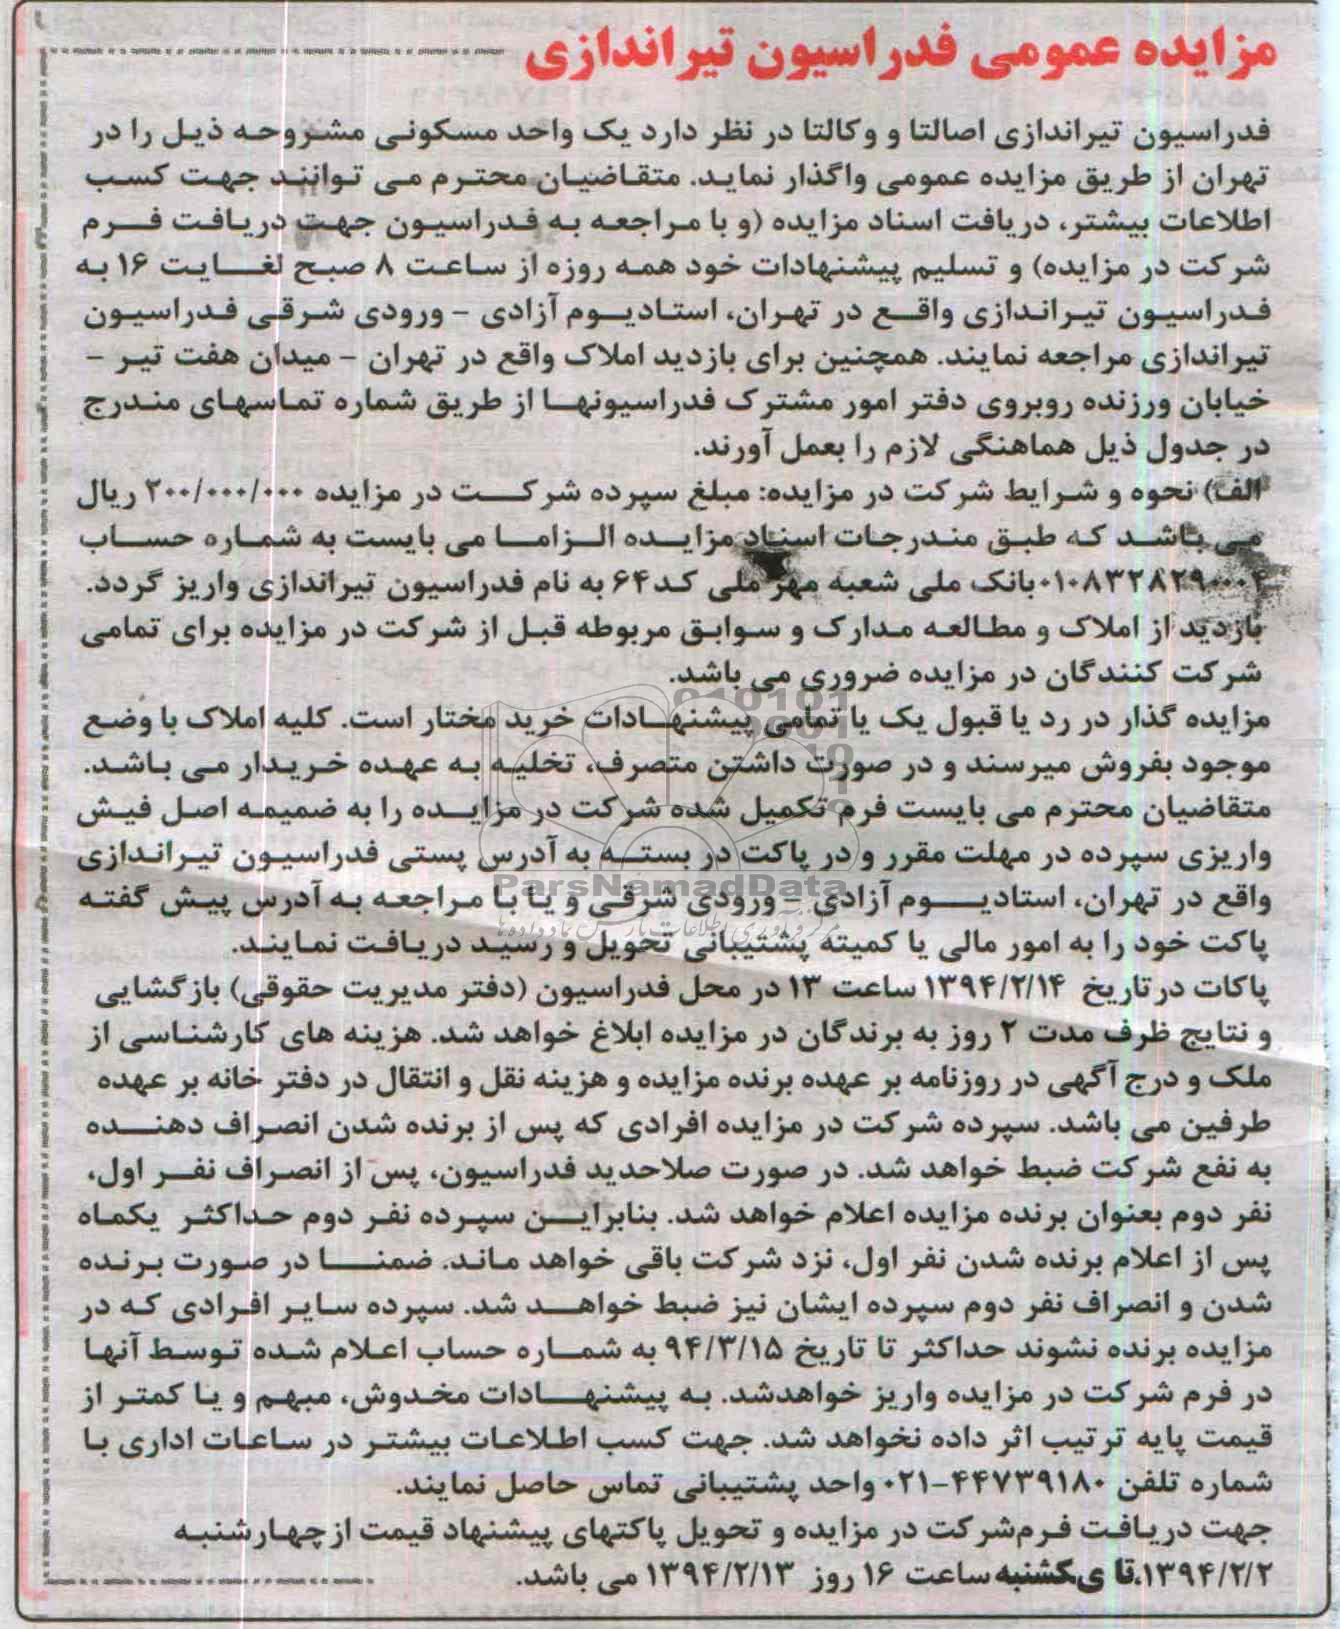 مزایده عمومی فدراسیون تیراندازی
فدراسیون تیراندازی اصالتا و وکالتا در نظر دارد یک واحد مسکونی مشروحه ذیل را در
تهران از طریق مزایده عمومی واگذار نماید. متقاضیان محترم می توانند جهت کسب
اطلاعات بیشتر، دریافت اسناد مزایده (و با مراجعه به فدراسیون جهت دریافت فرم
شرکت در مزایده) و تسلیم پیشنهادات خود همه روزه از ساعت ۸ صبح لغایت ۱۶ به
فدراسیون تیراندازی واقع در تهران، استادیوم آزادی - ورودی شرقی فدراسیون
تیراندازی مراجعه نمایند. همچنین برای بازدید املاک واقع در تهران - میدان هفت تیر -
خیابان ورزنده روبروی دفتر امور مشترک فدراسیونها از طریق شماره تماسهای مندرج
در جدول ذیل هماهنگی لازم را بعمل آورند.
الف) نحوه و شرایط شرکت در مزایده: مبلغ سپرده شرکت در مزایده ۲۰۰/۰۰۰/۰۰۰ ریال
می باشد که طبق مندرجات اسناد مزایده الزاما می بایست به شماره حساب
۰۱۰۸۳۲۸۲۹۰۰۰۴ بانک ملی شعبه مهر ملی کد ۶۴ به نام فدراسیون تیراندازی واریز گردد.
بازدید از املاک و مطالعه مدارک و سوابق مربوطه قبل از شرکت در مزایده برای تمامی
شرکت کنندگان در مزایده ضروری می باشد.
مزایده گذار در رد یا قبول یک یا تمامی پیشنهادات خرید مختار است. کلیه املاک با وضع
موجود بفروش میرسند و در صورت داشتن متصرف، تخلیه به عهده خریدار می باشد.
متقاضیان محترم می بایست فرم تکمیل شده شرکت در مزایده را به ضمیمه اصل فیش
واریزی سپرده در مهلت مقرر و در پاکت در بسته به آدرس پستی فدراسیون تیراندازی
واقع در تهران، استادیوم آزادی - ورودی شرقی و یا با مراجعه به آدرس پیش گفته
پاکت خود را به امور مالی یا کمیته پشتیبانی تحویل و رسید دریافت نمایند.
پاکات در تاریخ ۱۳۹۴/۲/۱۴ ساعت ۱۳ در محل فدراسیون (دفتر مدیریت حقوقی) بازگشایی
و نتایج ظرف مدت ۲ روز به برندگان در مزایده ابلاغ خواهد شد. هزینه های کارشناسی از
ملک و درج آگهی در روزنامه بر عهده برنده مزایده و هزینه نقل و انتقال در دفتر خانه بر عهده
طرفین می باشد. سپرده شرکت در مزایده افرادی که پس از برنده شدن انصراف دهنده
به نفع شرکت ضبط خواهد شد. در صورت صلاحدید فدراسیون، پس از انصراف نفر اول،
نفر دوم بعنوان برنده مزایده اعلام خواهد شد. بنابراین سپرده نفر دوم حداکثر یکماه
پس از اعلام برنده شدن نفر اول، نزد شرکت باقی خواهد ماند. ضمنا در صورت برنده
شدن و انصراف نفر دوم سپرده ایشان نیز ضبط خواهد شد. سپرده سایر افرادی که در
مزایده برنده نشوند حداکثر تا تاریخ ۹۴/۳/۱۵ به شماره حساب اعلام شده توسط آنها
در فرم شرکت در مزایده واریز خواهدشد. به پیشنهادات مخدوش، مبهم و یا کمتر از
قیمت پایه ترتیب اثر داده نخواهد شد. جهت کسب اطلاعات بیشتر در ساعات اداری با
شماره تلفن ۴۴۷۳۹۱۸۰-۰۲۱ واحد پشتیبانی تماس حاصل نمایند.
جهت دریافت فرم شرکت در مزایده و تحویل پاکتهای پیشنهاد قیمت از چهارشنبه
۱۳۹۴/۲/۲، تا یکشنبه ساعت ۱۶ روز ۱۳۹۴/۲/۱۳ می باشد.
ParsNamadData